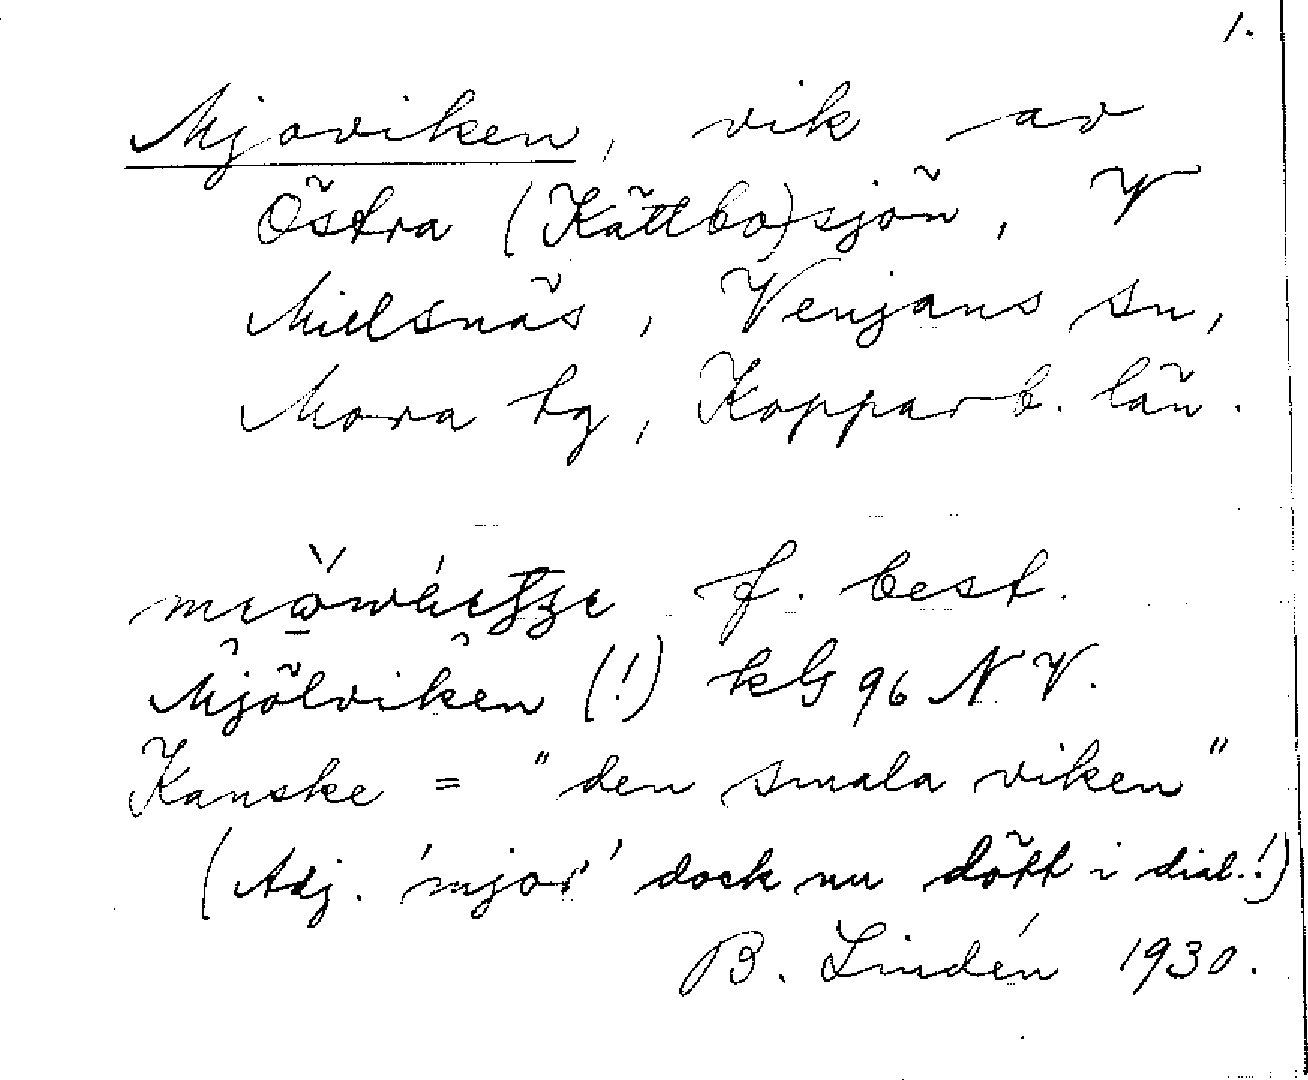 1.
Mjoviken, vik av
Östra (Kättbo)sjön, V
Mielsnäs, Venjans sn,
Mora tg, Kopparb. län.
f. best.
Mjölviken (!) kG 96 NV.
Kanske = "den smala viken"
(Adj. 'mjor' dock nu dött i dial.!)
B. Lindén 1930.